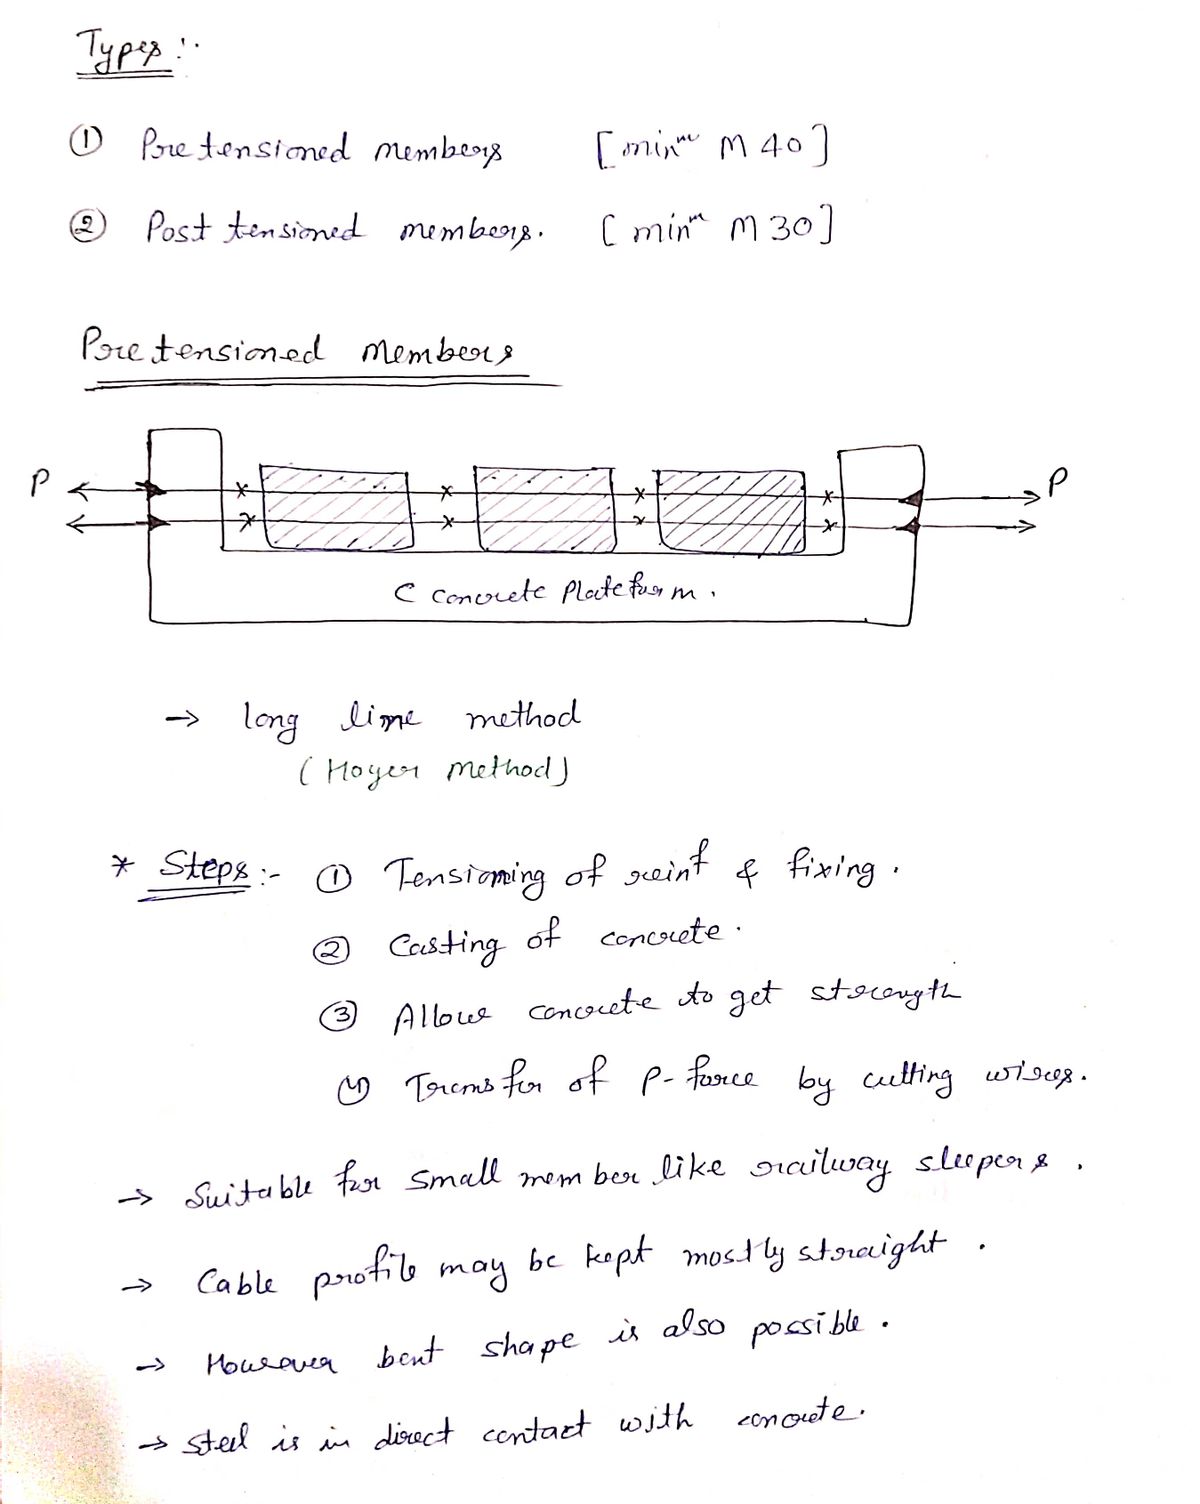 Types :-
① Pretensioned members [minᵐ M 40]
② Post tensioned members. [minᵐ M 30]
Pretensioned Members
P P
C concrete Plateform.
→ long line method
(Hoyer Method)
* Steps :- ① Tensioning of reinf & fixing.
② Casting of concrete.
③ Allow concrete to get strength
④ Transfer of P-force by cutting wires.
→ Suitable for small member like railway sleepers.
→ Cable profile may be kept mostly straight.
→ However bent shape is also possible.
→ steel is in direct contact with concrete.